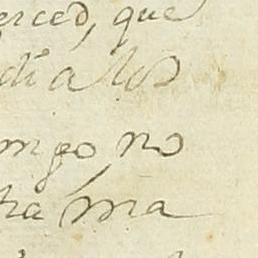 erced, que
dia los
mpo no
tra ma